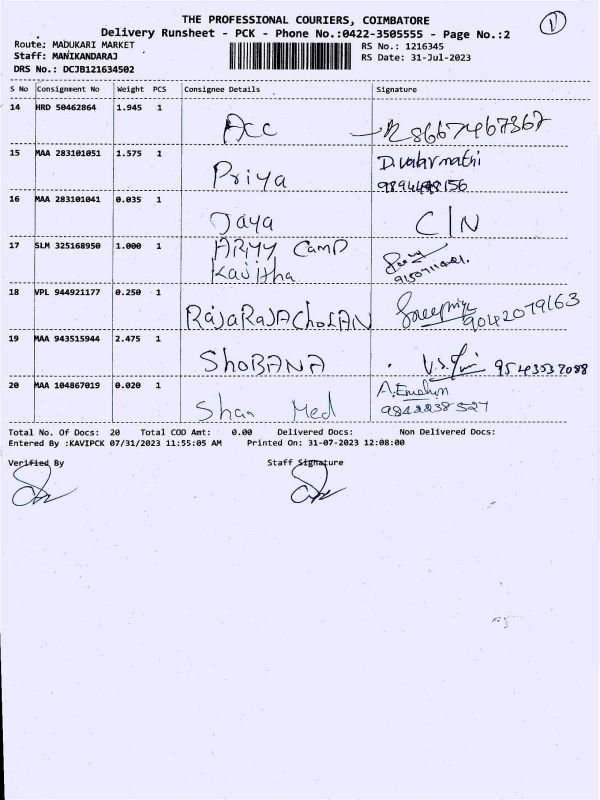 THE PROFESSIONAL COURIERS, COIMBATORE
Delivery Runsheet - PCK - Phone No.:0422-3505555 - Page No.:2
1
Route: MADUKARI MARKET
Staff: MANIKANDARAJ
DRS No.: DCJB121634502
RS No.: 1216345
RS Date: 31-Jul-2023
S No Consignment No Weight PCS Consignee Details Signature
14 HRD 50462864 1.945 1 Acc 8667467367
15 MAA 283101051 1.575 1 Priya D.valarmathi
16 MAA 283101041 0.035 1 Jaya C/N
17 SLM 325168950 1.000 1 ARMY Camp
Kavitha
18 VPL 944921177 0.250 1 RajaRaJAChoLAN 9042079163
19 MAA 943515944 2.475 1 ShoBANA 9543537088
20 MAA 104867019 0.020 1 Shan Med
9842238527
Total No. Of Docs: 20 Total COD Amt: 0.00 Delivered Docs: Non Delivered Docs:
Entered By :KAVIPCK 07/31/2023 11:55:05 AM Printed On: 31-07-2023 12:08:00
Verified By Staff Signature